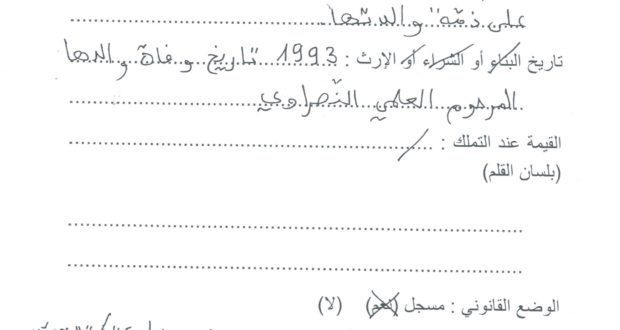 على ذمة والدتها
تاريخ البناء أو الشراء أو الإرث : 1993 تاريخ وفاة والدها
المرحوم العلمي النصراوي
القيمة عند التملك : /
(بلسان القلم)
الوضع القانوني : مسجل (نعم) (لا)